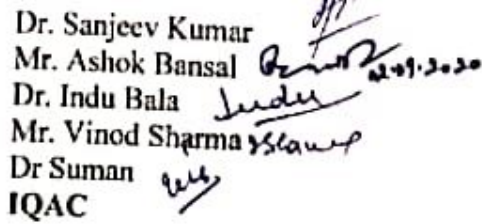 Dr. Sanjeev Kumar
Mr. Ashok Bansal 02.09.2020
Dr. Indu Bala Indu
Mr. Vinod Sharma
Dr Suman
IQAC